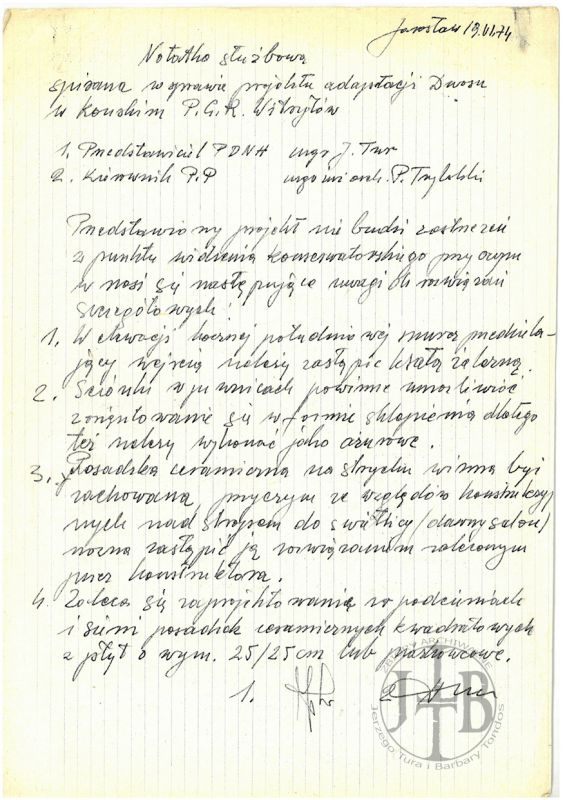 Jarosław 19.VI.74
Notatka służbowa
spisana w sprawie projektu adaptacji Dworu
w końskim P.G.R. Witryłów
1. Przedstawiciel PDNH mgr J. Tur
2. Kierownik P.P mgr inż arch. P. Trybalski
Przedstawiony projekt nie budzi zastrzeżeń
z punktu widzenia konserwatorskiego przy czym
wnosi się następujące uwagi do rozwiązań
szczegółowych:
1. W elewacji bocznej południowej murek przedziela-
jący wejścia należy zastąpić kratą żelazną.
2. Ścianki w piwnicach powinne umożliwić
zorientowanie się w formie sklepienia dlatego
też należy wykonać jako ażurowe.
3. Posadzka ceramiczna na strychu winna być
zachowana, przyczym ze względów konstrukcyj
nych nad stropem do świetlicy /dawny salon/
można zastąpić ją rozwiązaniem zaleconym
przez konstruktora.
4. Zaleca się zaprojektowanie w podcieniach
i sieni posadzek ceramicznych kwadratowych
z płyt o wym. 25/25 cm lub piaskowcowe.
1. 2.
ZBIORY ARCHIWALNE
JT BT
Jerzego Tura i Barbary Tondos